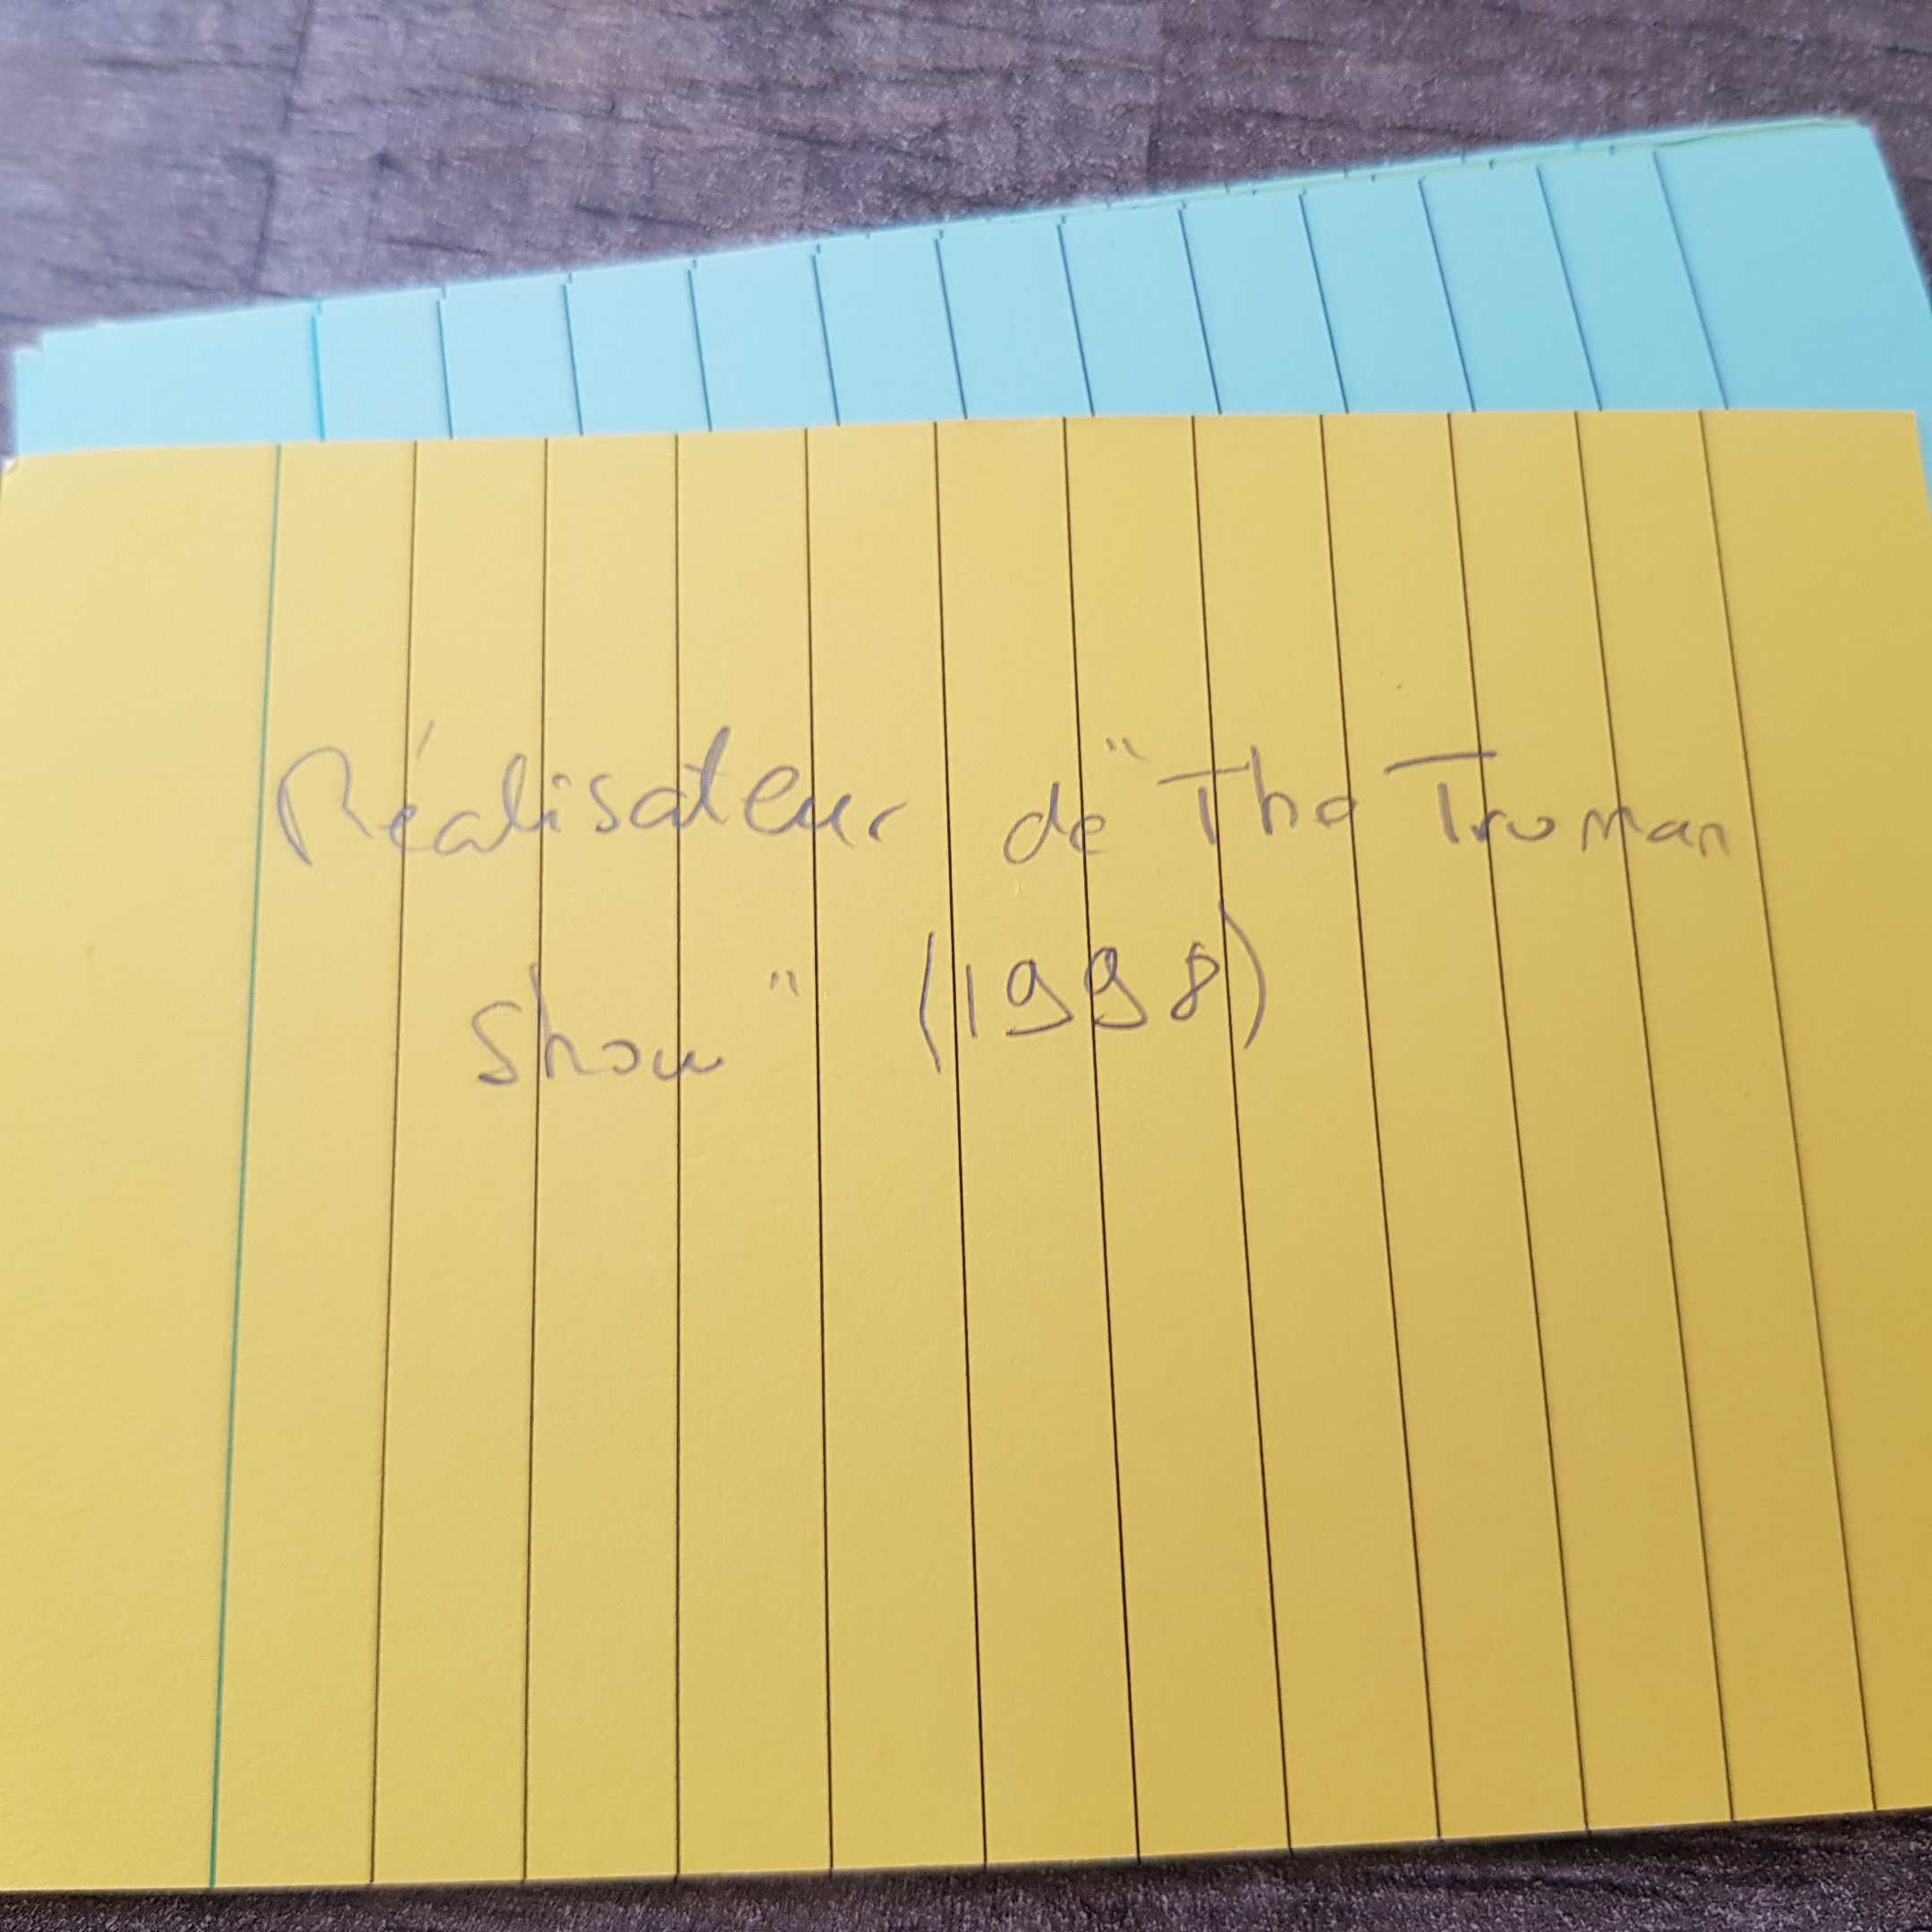 Réalisateur de "The Truman
Show" (1998)